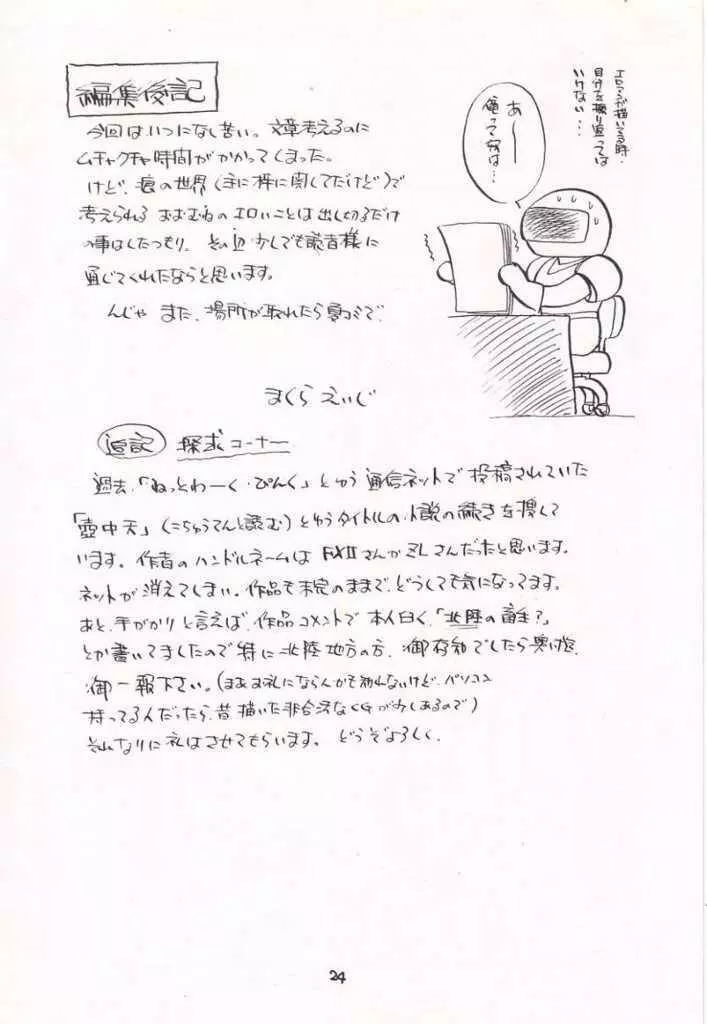 編集後記
今回はいつになし苦い。文章考えるのに
ムチャクチャ時間がかかってしまった。
けど、痕の世界(主に梓に関してだけど)で
考えられる おおむねのエロいことは出し切るだけ
の事はしたつもり。その辺少しでも読者様に
通じてくれたならと思います。
んじゃ また、場所が取れたら夏コミで、
まくら えいじ
エロマンガ描いてる時、
自分を振り返っては
いけない…
あ〜
俺って奴は…
追記 探求コーナー
過去、「ねっとわーく・ぴんく」とゆう通信ネットで投稿されていた
「壺中天」(こちゅうてんと読む)とゆうタイトルの小説の続きを捜して
います。作者のハンドルネームは FXIIさんかZLさんだったと思います。
ネットが消えてしまい、作品も未完のままで、どうしても気になってます。
あと、手がかりと言えば、作品コメントで本人曰く、「北陸の畜生?」
とか書いてましたので特に北陸地方の方、御存知でしたら奥付迄
御一報下さい。(まあお礼にならんかも知れないけど、パソコン
持ってるんだったら、昔描いた非合法なCGが少しあるので)
それなりに礼はさせてもらいます。どうぞよろしく、
24